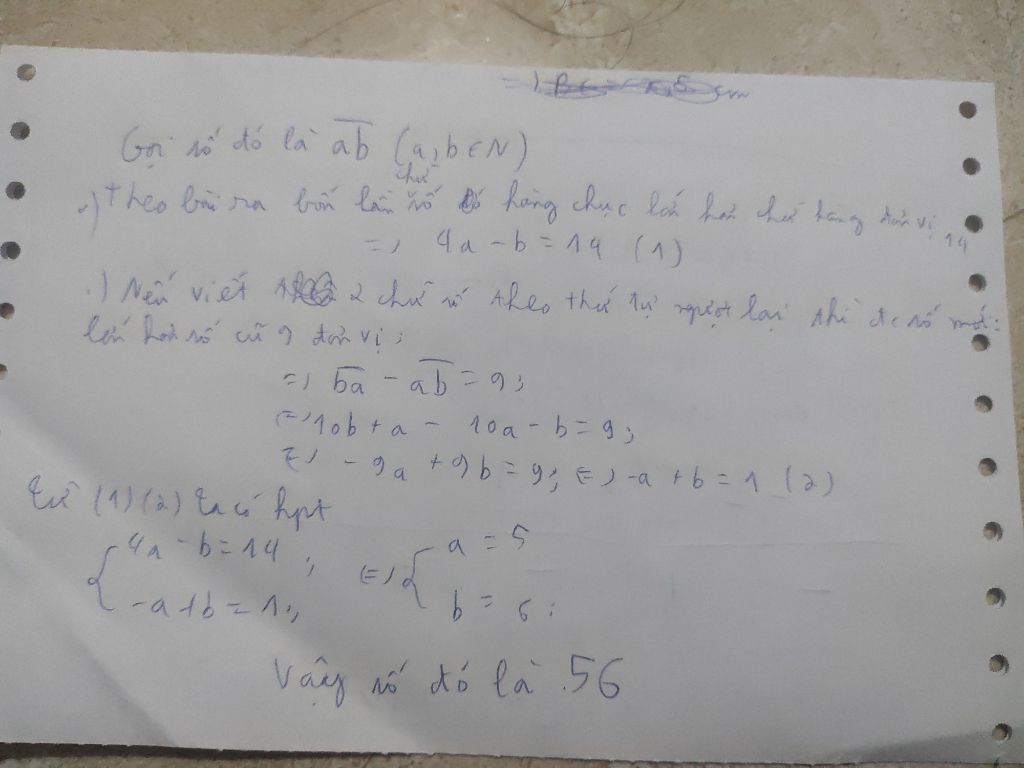 Gọi số đó là ab (a, b ∈ N)
chữ
.) theo bài ra bốn lần số hàng chục lớn hơn chữ hàng đơn vị 14
=> 4a - b = 14 (1)
.) Nếu viết 2 chữ số theo thứ tự ngược lại thì đc số mới:
lớn hơn số cũ 9 đơn vị;
=> ba - ab = 9;
<=> 10b + a - 10a - b = 9;
<=> -9a + 9b = 9; <=> -a + b = 1 (2)
từ (1) (2) ta có hpt
{ 4a - b = 14 ; <=> { a = 5
-a + b = 1; b = 6;
Vậy số đó là 56